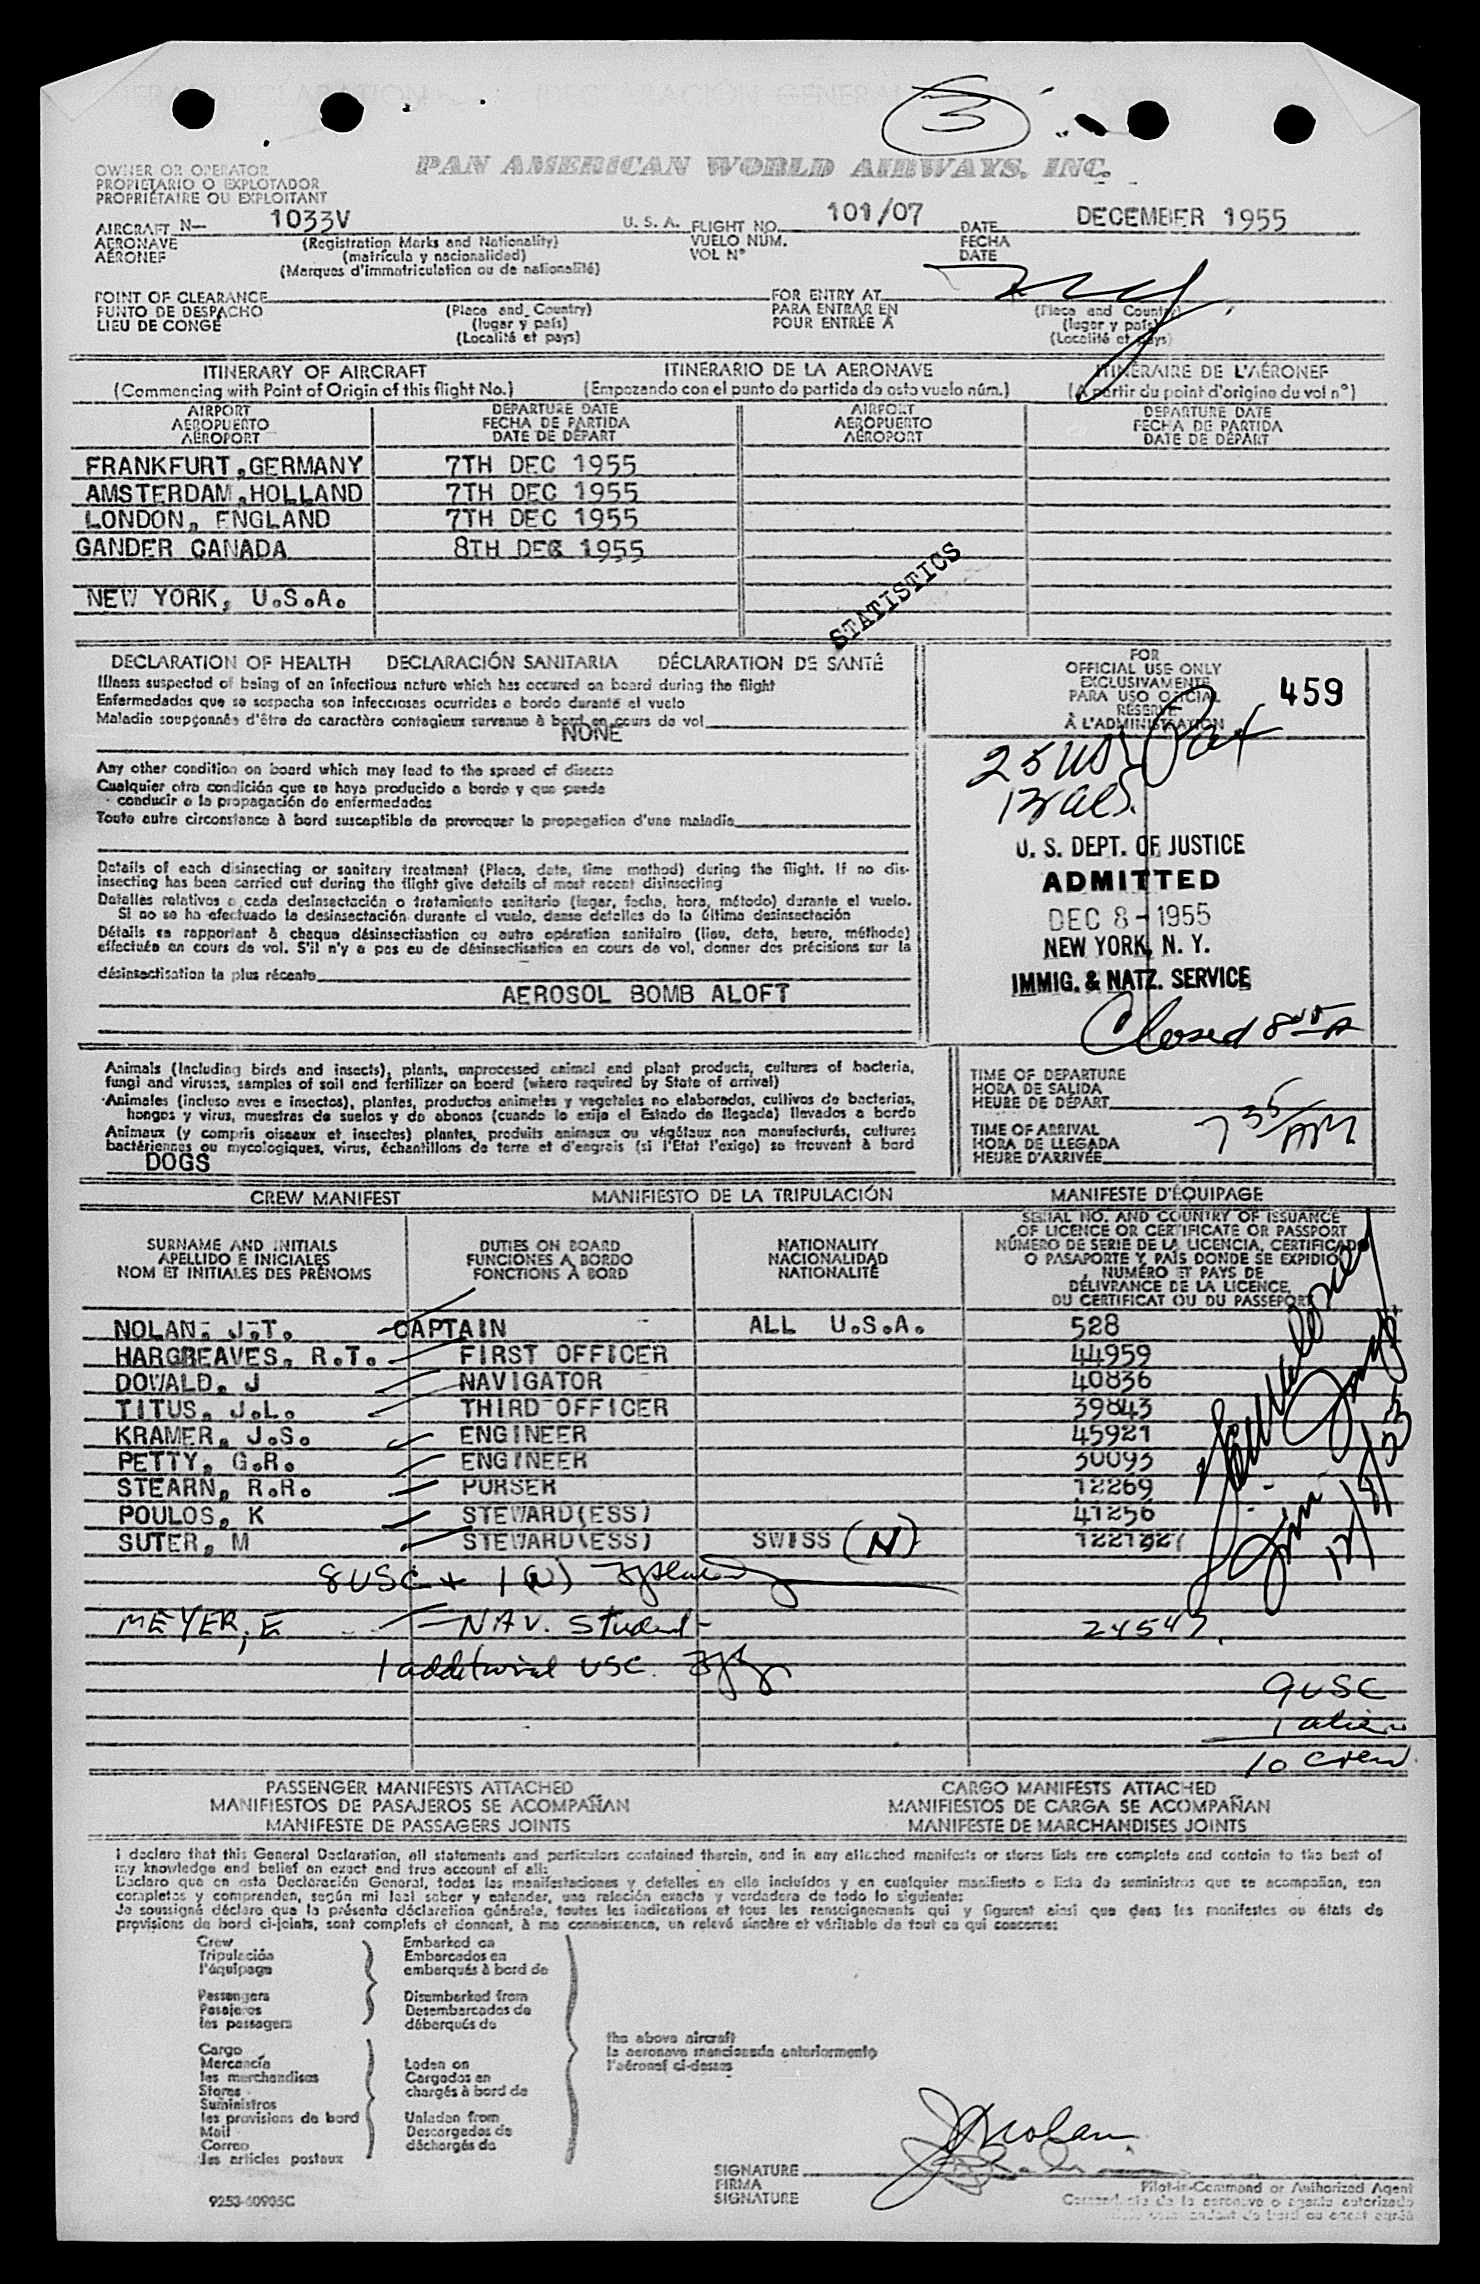 3
PAN AMERICAN WORLD AIRWAYS, INC.
OWNER OR OPERATOR
PROPIETARIO O EXPLOTADOR
PROPRIÉTAIRE OU EXPLOITANT
AIRCRAFT N- 1033V U. S. A. FLIGHT NO. 101/07 DATE DECEMBER 1955
AERONAVE (Registration Marks and Nationality) VUELO NÚM. FECHA
AÉRONEF (matrícula y nacionalidad) VOL Nº DATE
(Marques d'immatriculation ou de nationalité)
POINT OF CLEARANCE FOR ENTRY AT NY
PUNTO DE DESPACHO (Place and Country) PARA ENTRAR EN (Place and Country)
LIEU DE CONGÉ (lugar y país) POUR ENTRÉE A (lugar y país)
(Localité et pays) (Localité et pays)
ITINERARY OF AIRCRAFT ITINERARIO DE LA AERONAVE ITINÉRAIRE DE L'AÉRONEF
(Commencing with Point of Origin of this flight No.) (Empezando con el punto de partida de este vuelo núm.) (A partir du point d'origine du vol nº)
AIRPORT DEPARTURE DATE AIRPORT DEPARTURE DATE
AEROPUERTO FECHA DE PARTIDA AEROPUERTO FECHA DE PARTIDA
AÉROPORT DATE DE DÉPART AÉROPORT DATE DE DÉPART
FRANKFURT,GERMANY 7TH DEC 1955
AMSTERDAM,HOLLAND 7TH DEC 1955
LONDON, ENGLAND 7TH DEC 1955
GANDER CANADA 8TH DEC 1955
STATISTICS
NEW YORK, U.S.A.
DECLARATION OF HEALTH DECLARACIÓN SANITARIA DÉCLARATION DE SANTÉ
Illness suspected of being of an infectious nature which has occured on board during the flight
Enfermedades que se sospecha son infecciosas ocurridas a bordo durante el vuelo
Maladie soupçonnée d'être de caractère contagieux survenue à bord en cours de vol
NONE
Any other condition on board which may lead to the spread of disease
Cualquier otra condición que se haya producido a bordo y que puede
conducir a la propagación de enfermedades
Toute autre circonstance à bord susceptible de provoquer la propagation d'une maladie
Details of each disinsecting or sanitary treatment (Place, date, time method) during the flight. If no dis-
insecting has been carried out during the flight give details of most recent disinsecting
Detalles relativos a cada desinsectación o tratamiento sanitario (lugar, fecha, hora, método) durante el vuelo.
Si no se ha efectuado la desinsectación durante el vuelo, dense detalles de la última desinsectación
Détails se rapportant à chaque désinsectisation ou autre opération sanitaire (lieu, date, heure, méthode)
effectuée en cours de vol. S'il n'y a pas eu de désinsectisation en cours de vol, donner des précisions sur la
désinsectisation la plus récente
AEROSOL BOMB ALOFT
FOR
OFFICIAL USE ONLY
EXCLUSIVAMENTE
PARA USO OFICIAL
RÉSERVÉ
À L'ADMINISTRATION
459
25 US Pax
13 al
U. S. DEPT. OF JUSTICE
ADMITTED
DEC 8 - 1955
NEW YORK, N. Y.
IMMIG. & NATZ. SERVICE
Closed 8 45 A
Animals (Including birds and insects), plants, unprocessed animal and plant products, cultures of bacteria,
fungi and viruses, samples of soil and fertilizer on board (where required by State of arrival)
Animales (incluso aves e insectos), plantas, productos animales y vegetales no elaborados, cultivos de bacterias,
hongos y virus, muestras de suelos y de abonos (cuando lo exija el Estado de llegada) llevados a bordo
Animaux (y compris oiseaux et insectes) plantes, produits animaux ou végétaux non manufacturés, cultures
bactériennes ou mycologiques, virus, échantillons de terre et d'engrais (si l'Etat l'exige) se trouvant à bord
DOGS
TIME OF DEPARTURE
HORA DE SALIDA
HEURE DE DÉPART
TIME OF ARRIVAL
HORA DE LLEGADA
HEURE D'ARRIVÉE
7 35 AM
CREW MANIFEST MANIFIESTO DE LA TRIPULACIÓN MANIFESTE D'ÉQUIPAGE
SURNAME AND INITIALS
APELLIDO E INICIALES
NOM ET INITIALES DES PRÉNOMS
DUTIES ON BOARD
FUNCIONES A BORDO
FONCTIONS À BORD
NATIONALITY
NACIONALIDAD
NATIONALITÉ
SERIAL NO. AND COUNTRY OF ISSUANCE
OF LICENCE OR CERTIFICATE OR PASSPORT
NÚMERO DE SERIE DE LA LICENCIA, CERTIFICADO
O PASAPORTE Y PAÍS DONDE SE EXPIDIO
NUMÉRO ET PAYS DE
DÉLIVRANCE DE LA LICENCE,
DU CERTIFICAT OU DU PASSEPORT
NOLAN. J.T. CAPTAIN ALL U.S.A. 528
HARGREAVES, R.T. FIRST OFFICER 44959
DOWALD, J NAVIGATOR 40836
TITUS, J.L. THIRD OFFICER 39843
KRAMER, J.S. ENGINEER 45921
PETTY, G.R. ENGINEER 30093
STEARN, R.R. PURSER 12269
POULOS, K STEWARD(ESS) 41256
SUTER, M STEWARD(ESS) SWISS (N) 1221827
8 USC + 1 (N)
MEYER, E NAV. Student 24547
1 additional USC.
9 USC
1 alien
10 crew
PASSENGER MANIFESTS ATTACHED CARGO MANIFESTS ATTACHED
MANIFIESTOS DE PASAJEROS SE ACOMPAÑAN MANIFIESTOS DE CARGA SE ACOMPAÑAN
MANIFESTE DE PASSAGERS JOINTS MANIFESTE DE MARCHANDISES JOINTS
I declare that this General Declaration, all statements and particulars contained therein, and in any attached manifests or stores lists are complete and contain to the best of
my knowledge and belief an exact and true account of all:
Declaro que en esta Declaración General, todas las manifestaciones y detalles en ella incluídos y en cualquier manifiesto o lista de suministros que se acompañan, son
completas y comprenden, según mi leal saber y entender, una relación exacta y verdadera de todo lo siguiente:
Je soussigné déclare que la présente déclaration générale, toutes les indications et tous les renseignements qui y figurent ainsi que dans les manifestes ou états de
provisions de bord ci-joints, sont complets et donnent, à ma connaissance, un relevé sincère et véritable de tout ce qui concerne:
Crew Embarked on
Tripulación Embarcados en
l'équipage embarqués à bord de
Passengers Disembarked from
Pasajeros Desembarcados de
les passagers débarqués de
the above aircraft
la aeronave mencionada anteriormente
l'aéronef ci-dessus
Cargo
Mercancía Laden on
les marchandises Cargados en
Stores chargés à bord de
Suministros
les provisions de bord Unladen from
Mail Descargados de
Correo déchargés de
les articles postaux
JTNolan
SIGNATURE
FIRMA
SIGNATURE
Pilot-in-Command or Authorized Agent
9253-60905C